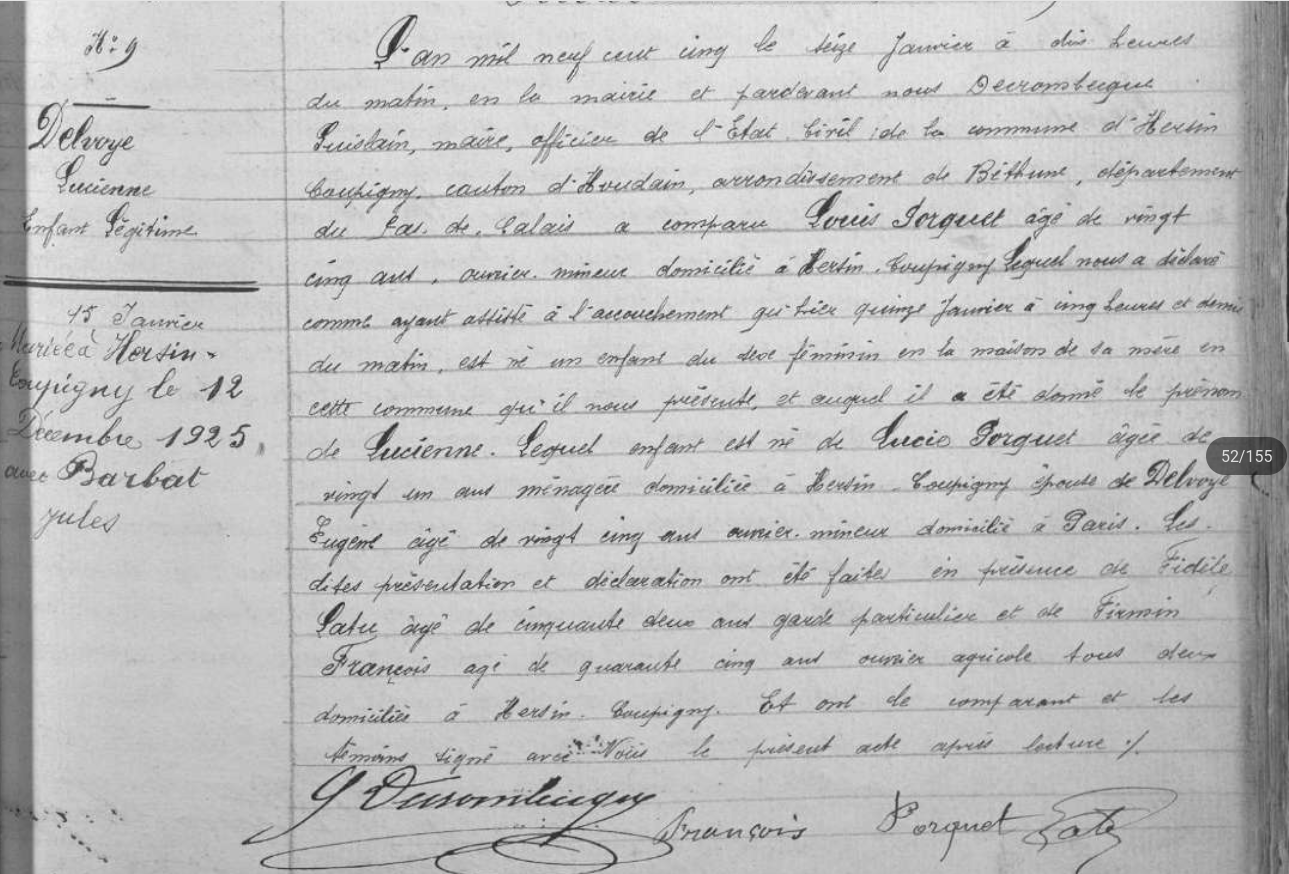 N° 9
Delvoye
Lucienne
Enfant Légitime
15 Janvier
Mariée à Hersin-
Coupigny le 12
Décembre 1925
avec Barbat
Jules
L'an mil neuf cent cinq le seize Janvier à dix heures
du matin, en la mairie et pardevant nous Decrombecque
Guislain, maire, officier de l'Etat Civil de la commune d'Hersin
Coupigny, canton d'Houdain, arrondissement de Béthune, département
du Pas-de-Calais a comparu Louis Porquet âgé de vingt
cinq ans, ouvrier-mineur domicilié à Hersin-Coupigny Lequel nous a déclaré
comme ayant assisté à l'accouchement qu'hier quinze Janvier à cinq heures et demie
du matin, est né un enfant du sexe féminin en la maison de sa mère en
cette commune qu'il nous présente, et auquel il a été donné le prénom
de Lucienne. Lequel enfant est né de Lucie Porquet âgée de
vingt un ans ménagère domiciliée à Hersin-Coupigny épouse de Delvoye
Eugène âgé de vingt cinq ans ouvrier-mineur domicilié à Paris. Les
dites présentation et déclaration ont été faites en présence de Fidèle
Laty âgé de cinquante deux ans garde particulier et de Firmin
François agé de quarante cinq ans ouvrier agricole tous deux
domiciliés à Hersin-Coupigny. Et ont le comparant et les
témoins signé avec Nous le présent acte après lecture ./.
G Decrombecque
François Porquet Laty
52/155